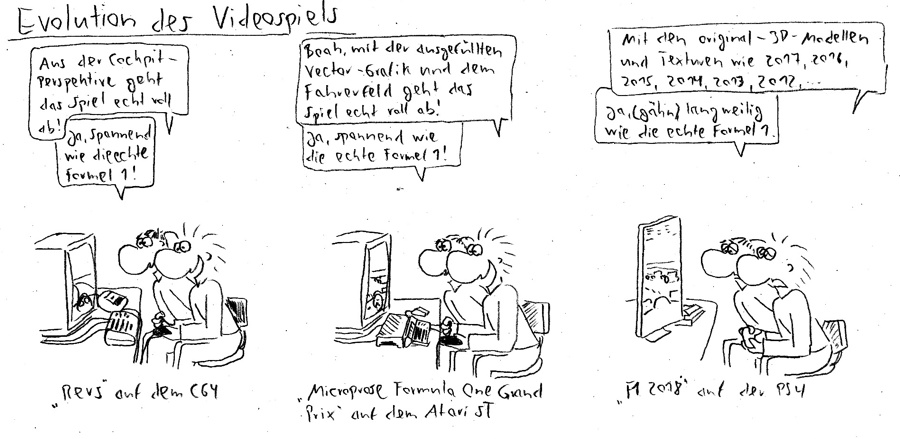 Evolution des Videospiels
Aus der Cockpit-
Perspektive geht
das Spiel echt voll
ab!
Ja, spannend
wie die echte
Formel 1!
Boah, mit der ausgefüllten
Vector-Grafik und dem
Fahrerfeld geht das
Spiel echt voll ab!
Ja, spannend wie
die echte Formel 1!
Mit den original-3D-Modellen
und Texturen wie 2017, 2016,
2015, 2014, 2013, 2012,...
Ja, (gähn) langweilig
wie die echte Formel 1.
„Revs" auf dem C64
„Microprose Formula One Grand
Prix" auf dem Atari ST
„F1 2018" auf der PS4